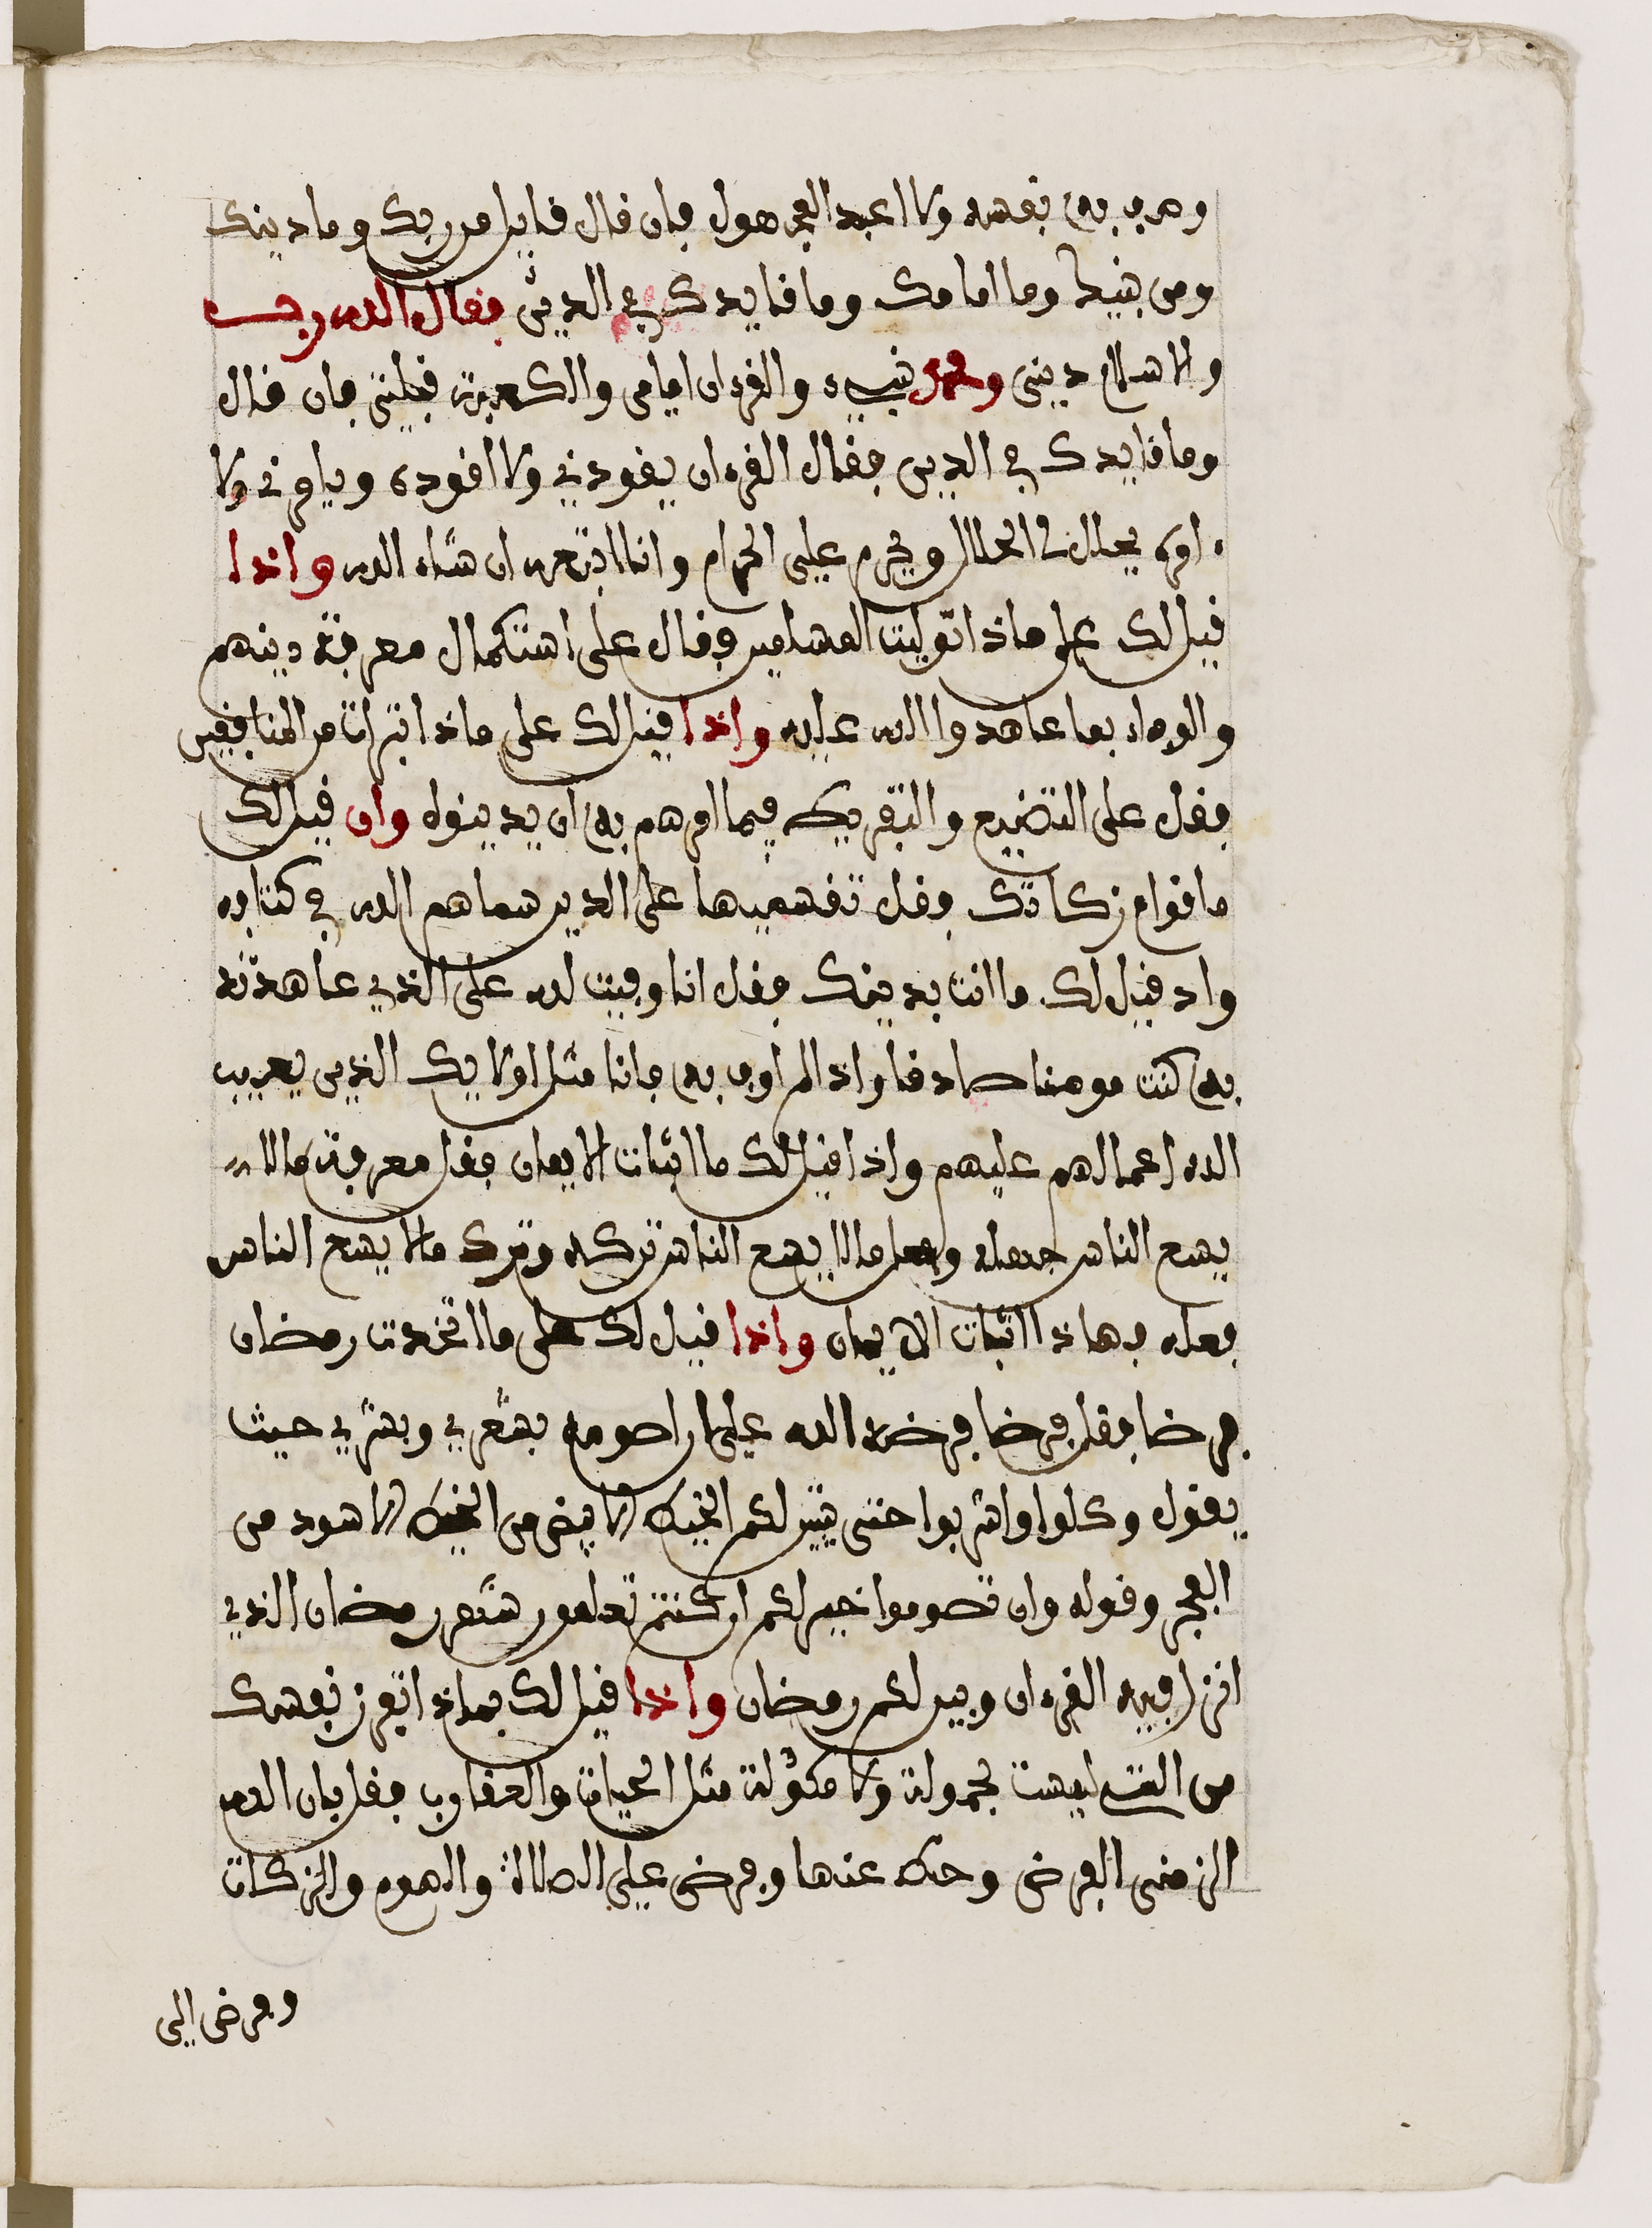 وصرف به نفسه ولا اعبد المجهول فان قال قايل من ربك وما دينك
ومن نبيك وما امامك وما قايدك في الدين فقال الله ربي
والاسلام ديني ومحمد نبيء والقرءان امامي والكعبة قبلتي فان قال
وما قايدك في الدين فقال القرءان يقودني ولا اقوده ويامرني ولا
ءامره يحلل لي الحلال ويحرم علي الحرام وانا اتبعه ان شاء الله واذا
قيل لك على ماذا توليت المسلمين فقال على استكمال معرفة دينهم
والوفاء بما عاهدوا الله عليه واذا قيل لك على ماذا تبرات من المنافقين
فقل على التضييع والتفريط فيما امرهم به ان يدينوله وان قيل لك
ما قوام زكاتك فقل تقسيمها على الذين سماهم الله في كتابه
واذ قيل لك ما انت بدينك فقل انا وفيت لله على الذي عاهدته
به كنت مومنا صادقا واذا لم اوف به فانا مثل اولايك الذين يعيب
الله اعمالهم عليهم واذا قيل لك ما اثبات الايمان فقل معرفة مالا
يسع الناس جهله وعمل مالا يسع الناس تركه وترك مالا يسع الناس
فعله فهاذا اثبات الايمان واذا قيل لك على ما اتخدت رمضان
فرضا فقل فرضا فرضه الله علي ان اصومه بشعري وبشري حيث
يقول وكلوا واشربوا حتى يتبين لكم الخيط الابيض من الخيط الاسود من
الفجر وقوله وان تصوموا خير لكم ان كنتم تعلمون شهر رمضان الذي
انزل فيه القرءان وبين لكم رمضان واذا قيل لك بماذا تفرز نفسك
من التي ليست بحمولة ولا مكولة مثل الحيات والعقارب فقل بان الله
الزمني الفرض وحط عنها وفرض علي الصلاة والصوم والزكات
وفرض الي